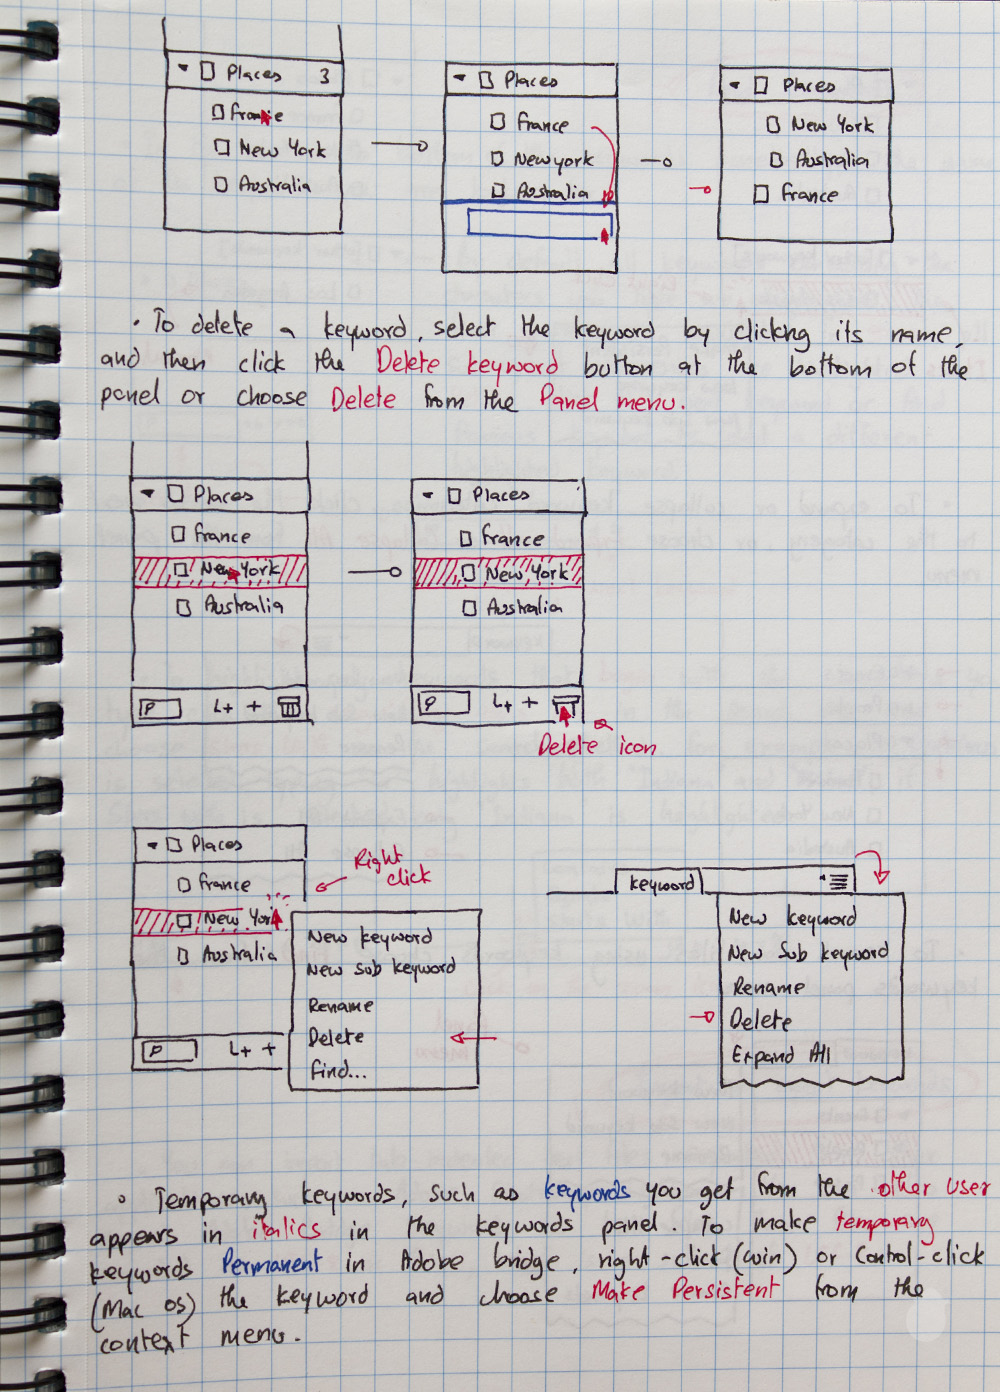 Places 3
France
New York
Australia
Places
France
Newyork
Australia
Places
New York
Australia
France
• To delete a keyword, select the keyword by clickng its name,
and then click the Delete keyword button at the bottom of the
panel or choose Delete from the Panel menu.
Places
France
New York
Australia
L+ +
Places
France
New York
Australia
L+ +
Delete icon
Places
France
New York
Australia
L+ +
Right
click
New keyword
New sub keyword
Rename
Delete
Find...
keyword
New keyword
New Sub keyword
Rename
Delete
Expand All
• Temporary keywords, such as keywords you get from the other user
appears in italics in the keywords panel. To make temporary
keywords Permanent in Adobe bridge, right-click (win) or Control-click
(Mac OS) the keyword and choose Make Persistent from the
context menu.